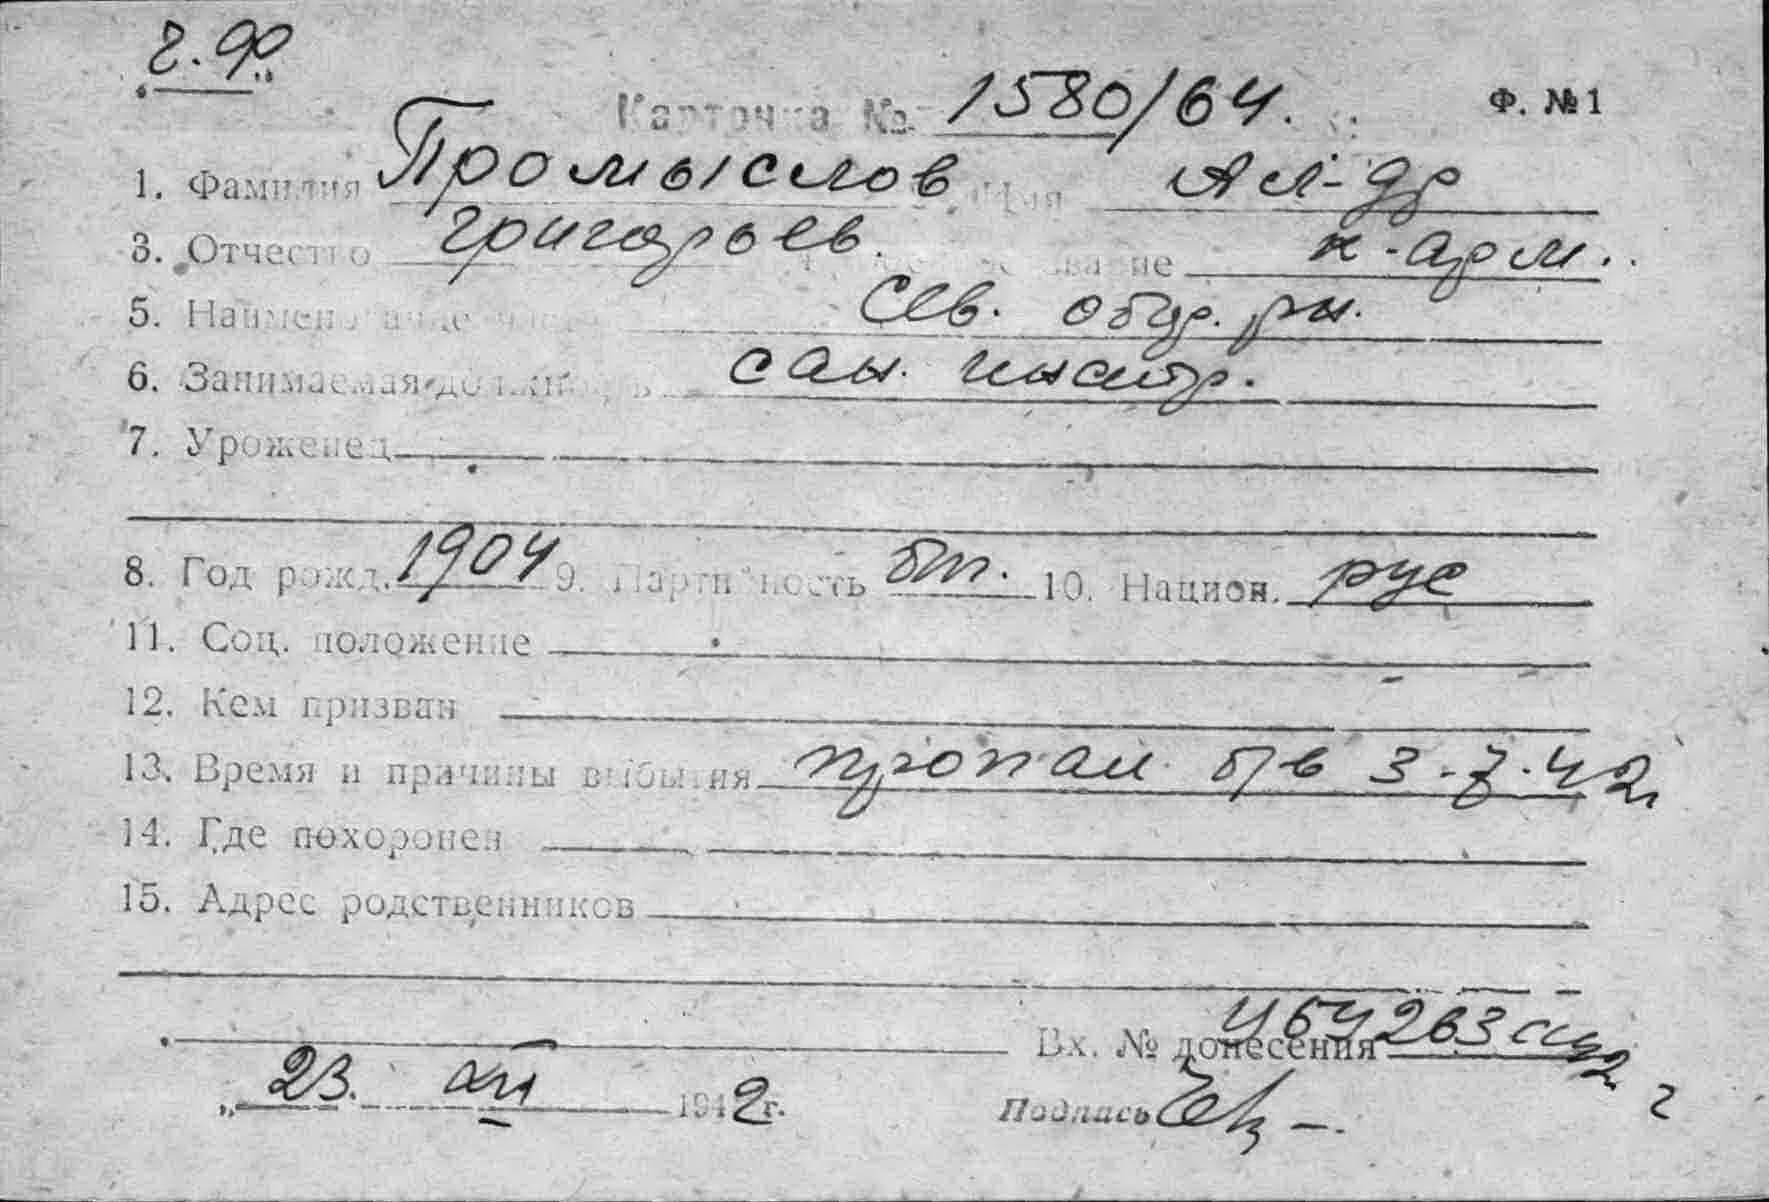 ч. Ф
Карточка № 1580/64. Ф. № 1
1. Фамилия Промыслов Имя Ал-др
3. Отчество Григорьев. звание к-арм.
5. Наименование части Сев. обор. рн.
6. Занимаемая должность сан. инстр.
7. Уроженец
8. Год рожд. 1904 9. Партийность бп. 10. Национ. рус
11. Соц. положение
12. Кем призван
13. Время и причины выбытия пропал б/в 3.7.42
14. Где похоронен
15. Адрес родственников
Вх. № донесения
„ 23. XII 1942 г. Подпись